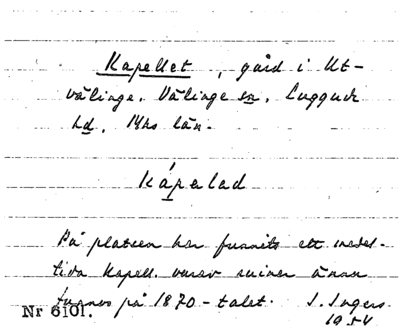 Kapellet, gård i Ut-
välinge. Välinge sn, Luggude
hd, Mhs län.
Kápelad
På platsen har funnits ett medel-
tida kapell, varav ruiner ännu
funnos på 1870-talet. I. Ingers
Nr 6101. 1954